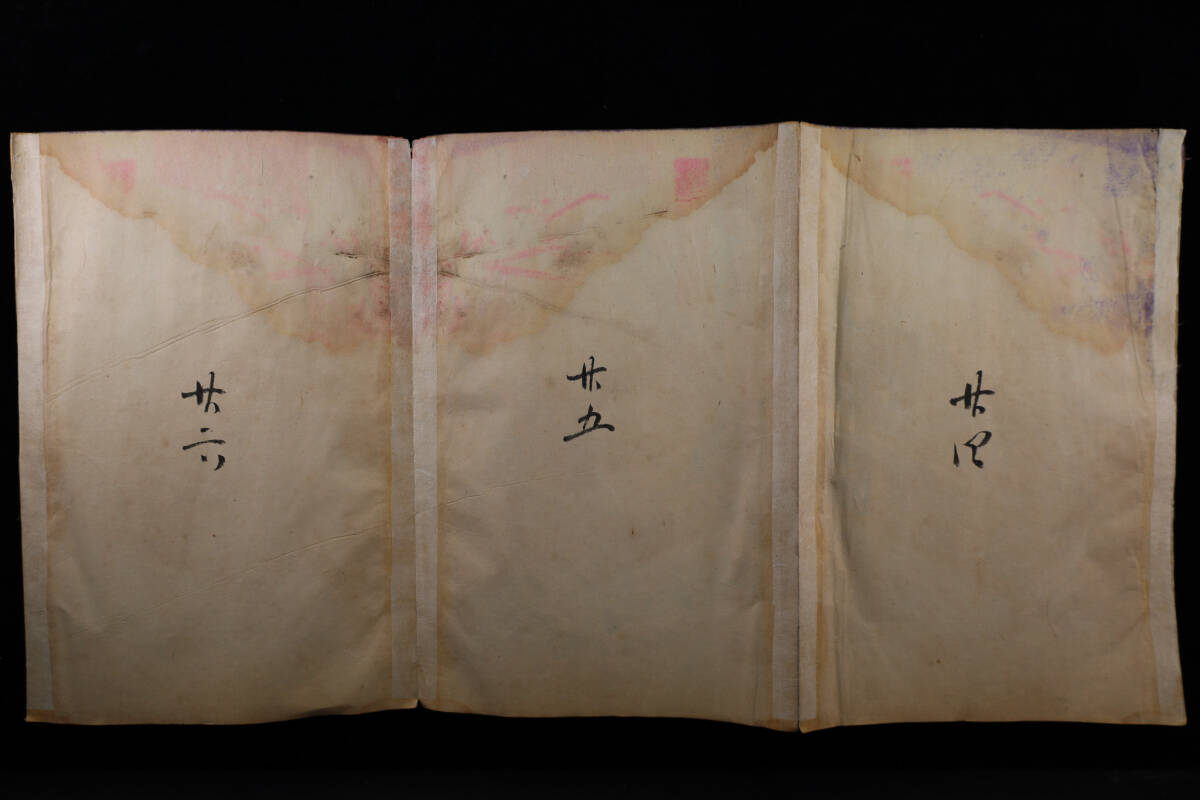 廿四
廿五
廿六